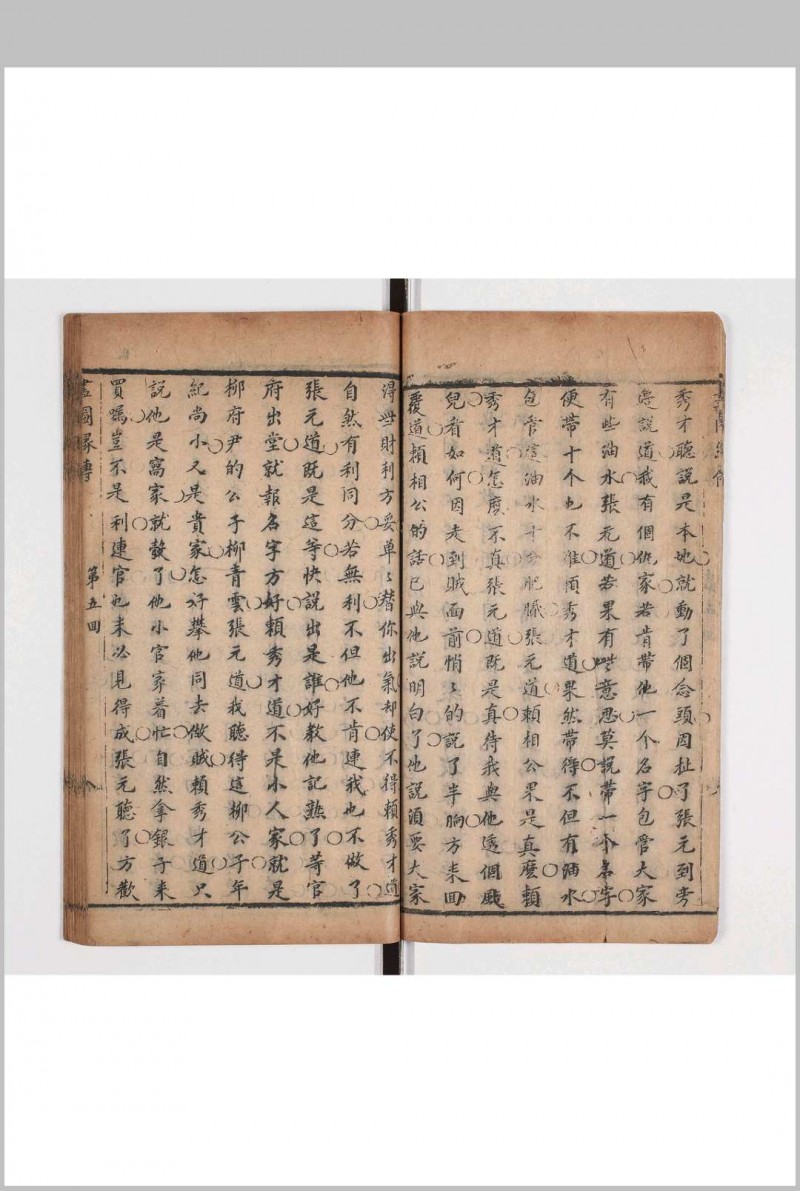 秀才聽說是本地就動了個念頭因扯了張元到旁
邊說道我有個仇家若肯帶他一个名字包管大家
有些油水張元道若果有些意思莫說帶一个名字
便帶十个也不難煩秀才道果然帶得不但有油水
包管這油水十分肥膩張元道賴相公果是真麽賴
秀才道怎麽不真張元道既是真待我與他透個風
兒看如何因走到賊面前悄〻的說了半晌方来回
覆道賴相公的話已與他說明白了他說湏要大家
得些財利方妥单〻替你出氣却使不得賴秀才道
自然有利同分若無利不但他不肯連我也不做了
張元道既是這等快說出是誰好教他記熟了等官
府出堂就報名字方好賴秀才道不是小人家就是
柳府尹的公子柳青雲張元道我聽得這柳公子年
紀尚小又是貴家怎好攀他同去做賊賴秀才道只
說他是窩家就彀了他小官家着忙自然拿銀子来
買嘱豈不是利連官也未必見得成張元聽了方歡
畫圖緣傳
第五回